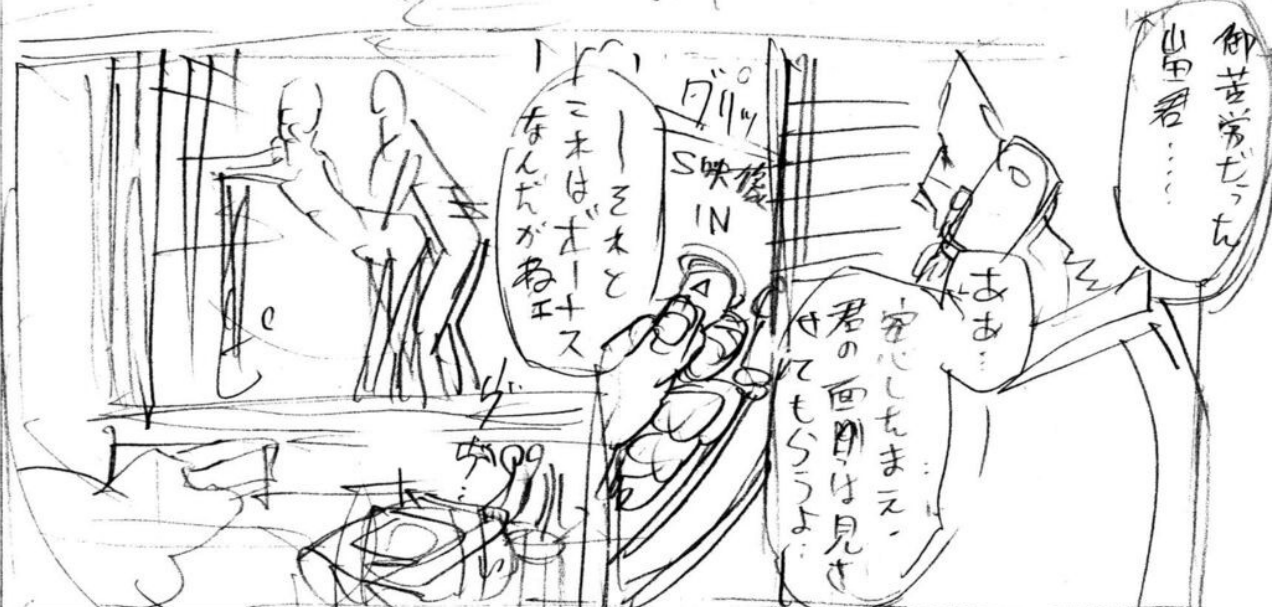 御苦労だった
山田君……
ああ…
安心したまえ…
君の面倒は見さ
せてもらうよ…
S映像
IN
――それと
これはボーナス
なんだがねェ